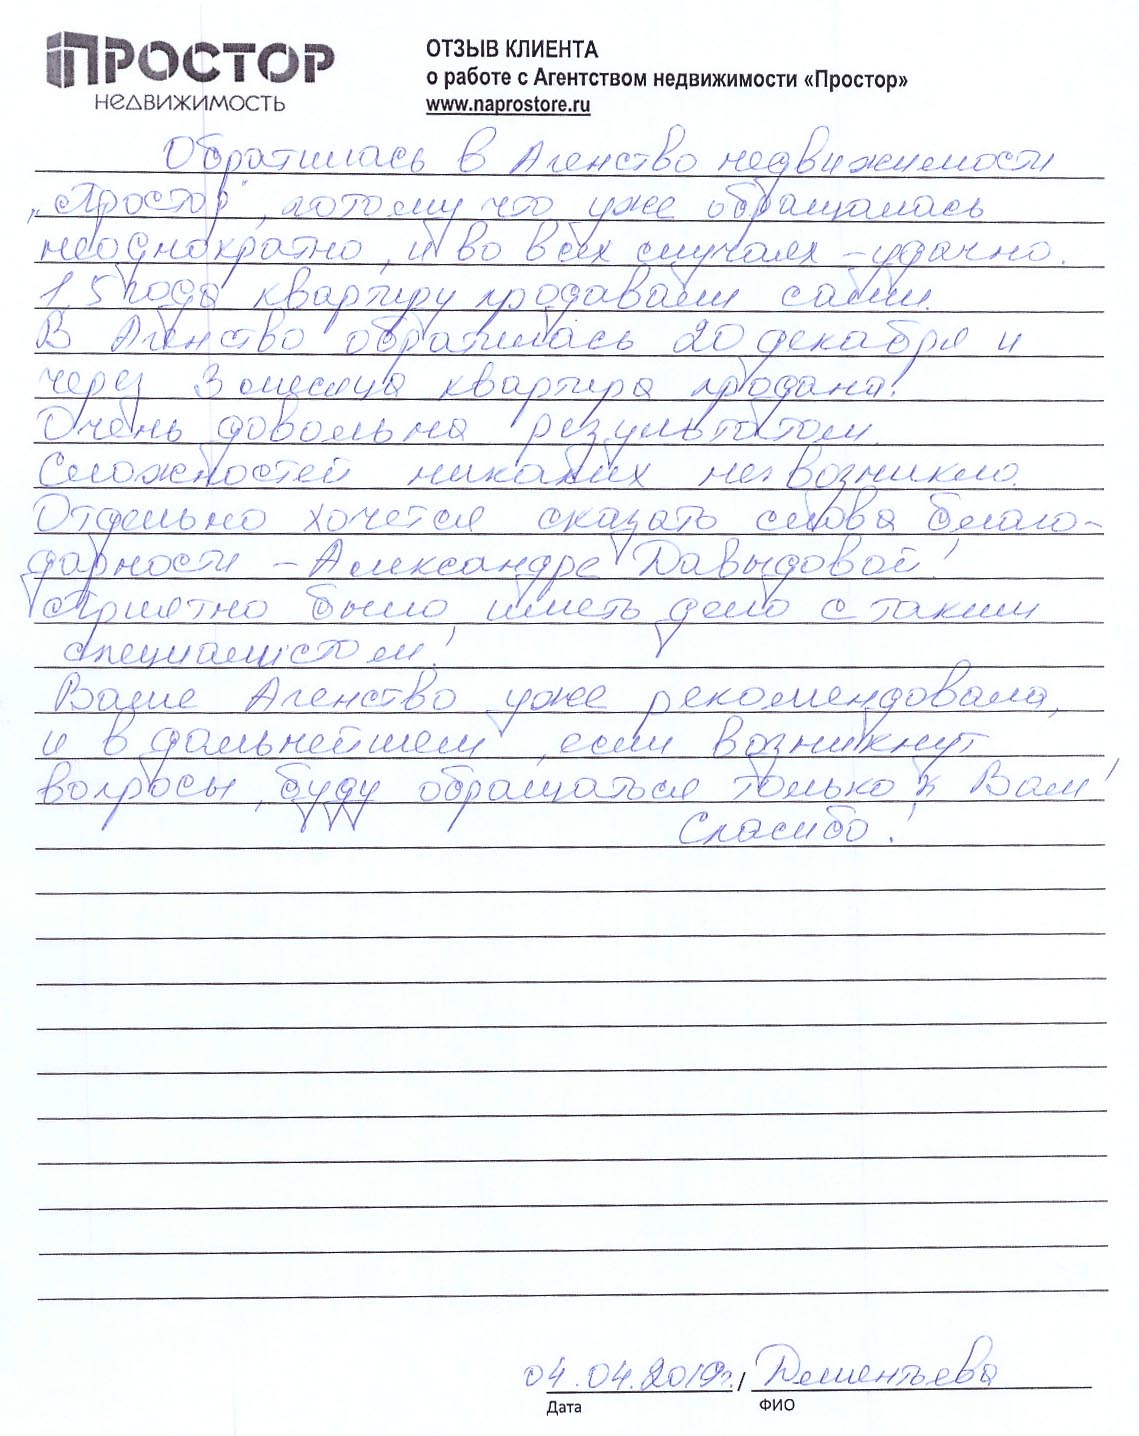 ПРОСТОР
НЕДВИЖИМОСТЬ
ОТЗЫВ КЛИЕНТА
о работе с Агентством недвижимости «Простор»
www.naprostore.ru
Обратилась в Агенство недвижимости
„Простор", потому что уже обращалась
неоднократно, и во всех случаях – удачно.
1,5 года квартиру продавали сами.
В Агенство обратилась 20 декабря и
через 3 месяца квартира продана!
Очень довольна результатом.
Сложностей никаких не возникло.
Отдельно хочется сказать слова благо-
дарности – Александре Давыдовой!
Приятно было иметь дело с таким
специалистом!
Ваше Агенство уже рекомендовала,
и в дальнейшем, если возникнут
вопросы, буду обращаться только к Вам!
Спасибо!
04.04.2019г. / Дементьева
Дата ФИО